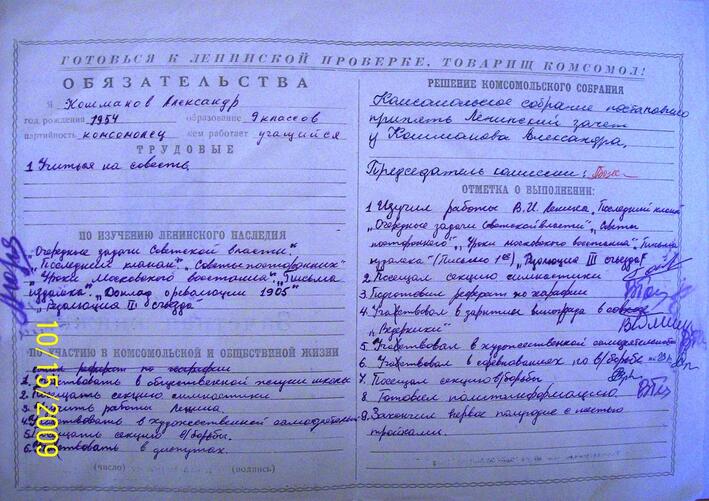 ГОТОВЬСЯ К ЛЕНИНСКОЙ ПРОВЕРКЕ, ТОВАРИЩ КОМСОМОЛ!
ОБЯЗАТЕЛЬСТВА
Я Кошманов Александр
год рождения 1954 образование 9 классов
партийность комсомолец кем работает учащийся
ТРУДОВЫЕ
1 Учиться на совесть
ПО ИЗУЧЕНИЮ ЛЕНИНСКОГО НАСЛЕДИЯ
„Очередные задачи Советской власти"
„Последний клапан" „Советы постороннего"
„Уроки Московского восстания" „Письма
издалека" „Доклад о революции 1905"
„Резолюция III съезда"
ПО УЧАСТИЮ В КОМСОМОЛЬСКОЙ И ОБЩЕСТВЕННОЙ ЖИЗНИ
реферат по географии
1. Участвовать в общественной жизни школы
2. Посещать секцию гимнастики
3. работы Ленина
4. Участвовать в художественной самодеятельн
5. Посещать секцию в/борьбы.
6. Участвовать в диспутах.
(число) (подпись)
РЕШЕНИЕ КОМСОМОЛЬСКОГО СОБРАНИЯ
Комсомольское собрание постановило
принять Ленинский зачет
у Кошманова Александра.
Председатель комиссии:
ОТМЕТКА О ВЫПОЛНЕНИИ:
1 Изучил работы В.И. Ленина „Последний клапан"
„Очередные задачи Советской власти" „Советы
постороннего" „Уроки московского восстания" „Письма
издалека" (Письмо 1ое) „Резолюция III съезда"
2. Посещал секцию гимнастики
3. Подготовил реферат по географии
4. Участвовал в закрытии винограда в совхозе
5 Участвовал в художественной самодеятельности
6. Участвовал в соревнованиях по в/борьбе
7. Посещал секцию в/борьбы
8 Готовил политинформацию
9. Закончил первое полугодие с шестью
тройками.
10/15/2009